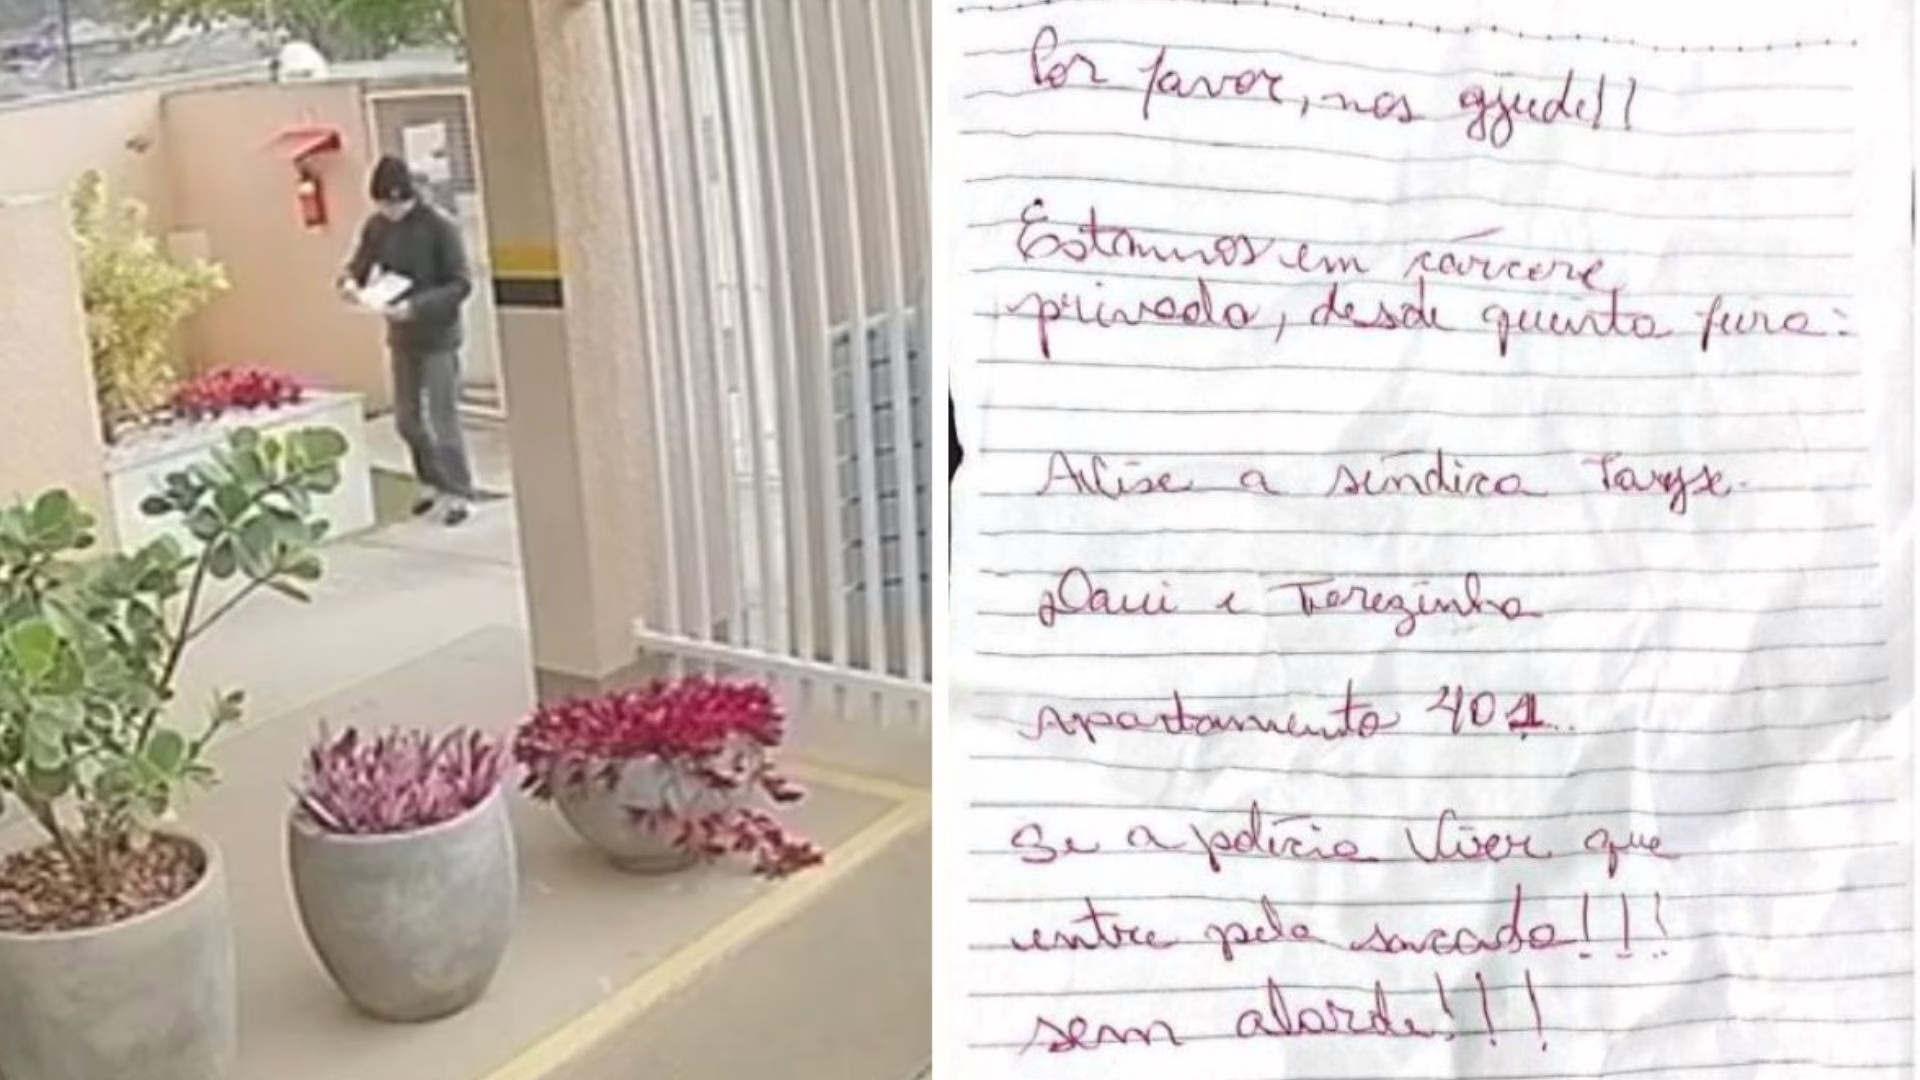 Por favor, nos ajude!!
Estamos em cárcere
privado, desde quinta feira:
Avise a síndica Tayse.
Davi e Terezinha
apartamento 401.
Se a polícia vier que
entre pela sacada!!!
sem alarde!!!